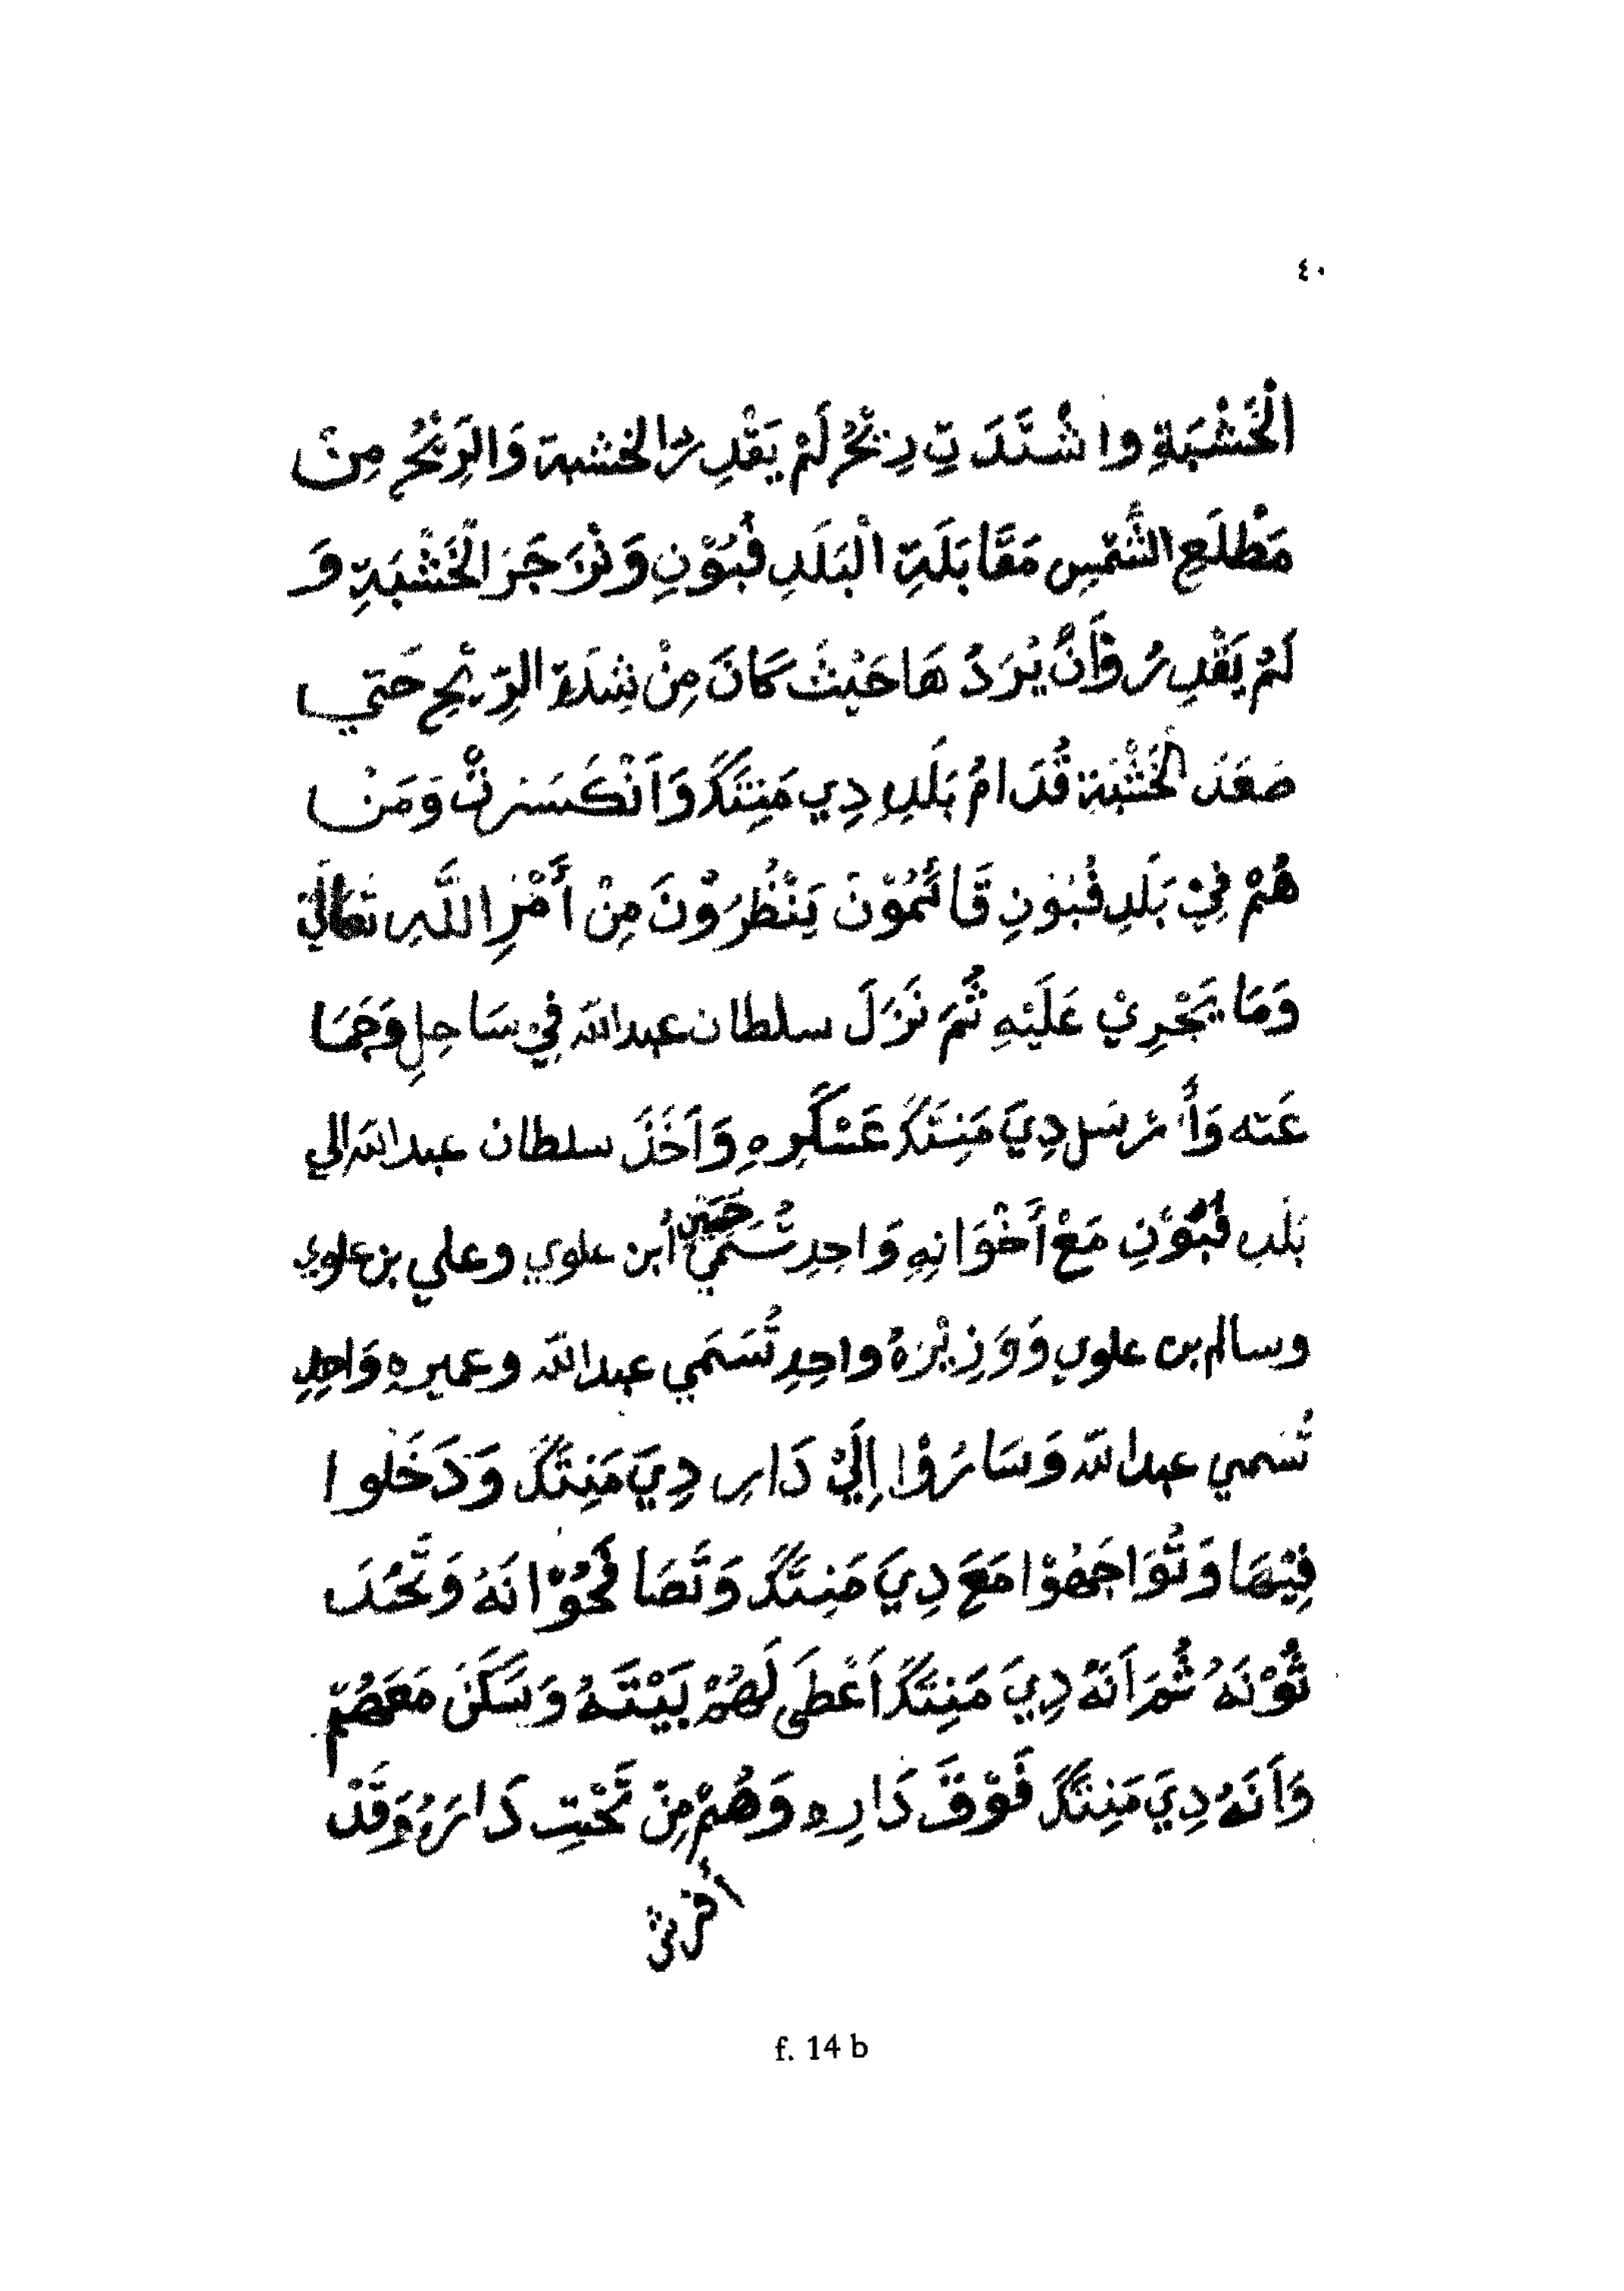 ٤٠
الْخَشْبَةِ واشْتَدَتِ رِيْحُ لَمْ يَقْدِرُ الخشبة وَالرِيْحُ مِنْ
مَطْلَعِ الشَّمْسِ مَقَابَلَةِ الْبَلَدِ فُبُوْنِ وَنْزَجَرَ الْخَشْبَةِ وَ
لَمْ يَقْدِرُوْا أَنْ يُرَدُّهَا حَيْثَ كَانَ مِنْ شِدَةِ الرِّيْحِ حَتي
صَعَدَ الْخَشْبَة قُدَامُ بَلَدِ دِي مَنِتَكَ وَاَنْكَسَرتْ وَمَنْ
هُمْ فِيْ بَلَدِ فُبُوْنِ قَائمُوْنَ يَنْظُرَوْنَ مِنْ أَمْرِ اللَّهِ تَعَالَي
وَمَا يَجْرِيْ عَلَيْهِ ثُمَ نَزَلَ سلطان عبدالله فِيْ سَاحِلِ وَجَمَا
عَته وَأَرْسَل دِيَ مَنِتَكَ عَسْكَرِهِ وَاَخَذَ سلطان عبدالله الي
بَلَد فُبُوْنِ مَعْ أَخْوَانِهِ وَاحِدِ تُسَمَيْ حَسَيْن أبن علوي وعلي بن علوي
وسالم بن علوي وَوَزِيْرَهُ واحِدِ تُسَمَي عبدالله وعميره وَاحِدِ
تُسَمي عبدالله وَسَارُوْا اِلَيْ دَارِ دِيَ مَنِتَكَ وَدَخَلُوا
فِيْهَا وَتُوَاجَهُوْا مَعَ دِيَ مَنِتَكَ وَتَصَافَحُوْا نَهُ وَتَحَدَ
ثُوْنَهُ ثُمَ اَنَهُ دِيَ مَنِتَكَ اَعْطَى لَهُمْ بَيْتَهُ وَسَكَنَ مَعَهُمْ
وَاَنَهُ دِيَ مَنِتَكَ فَوْقَ دَارِه وَهُمْ مِنْ تَحْتِ دَارَهُ وَقَدْ
f. 14 b